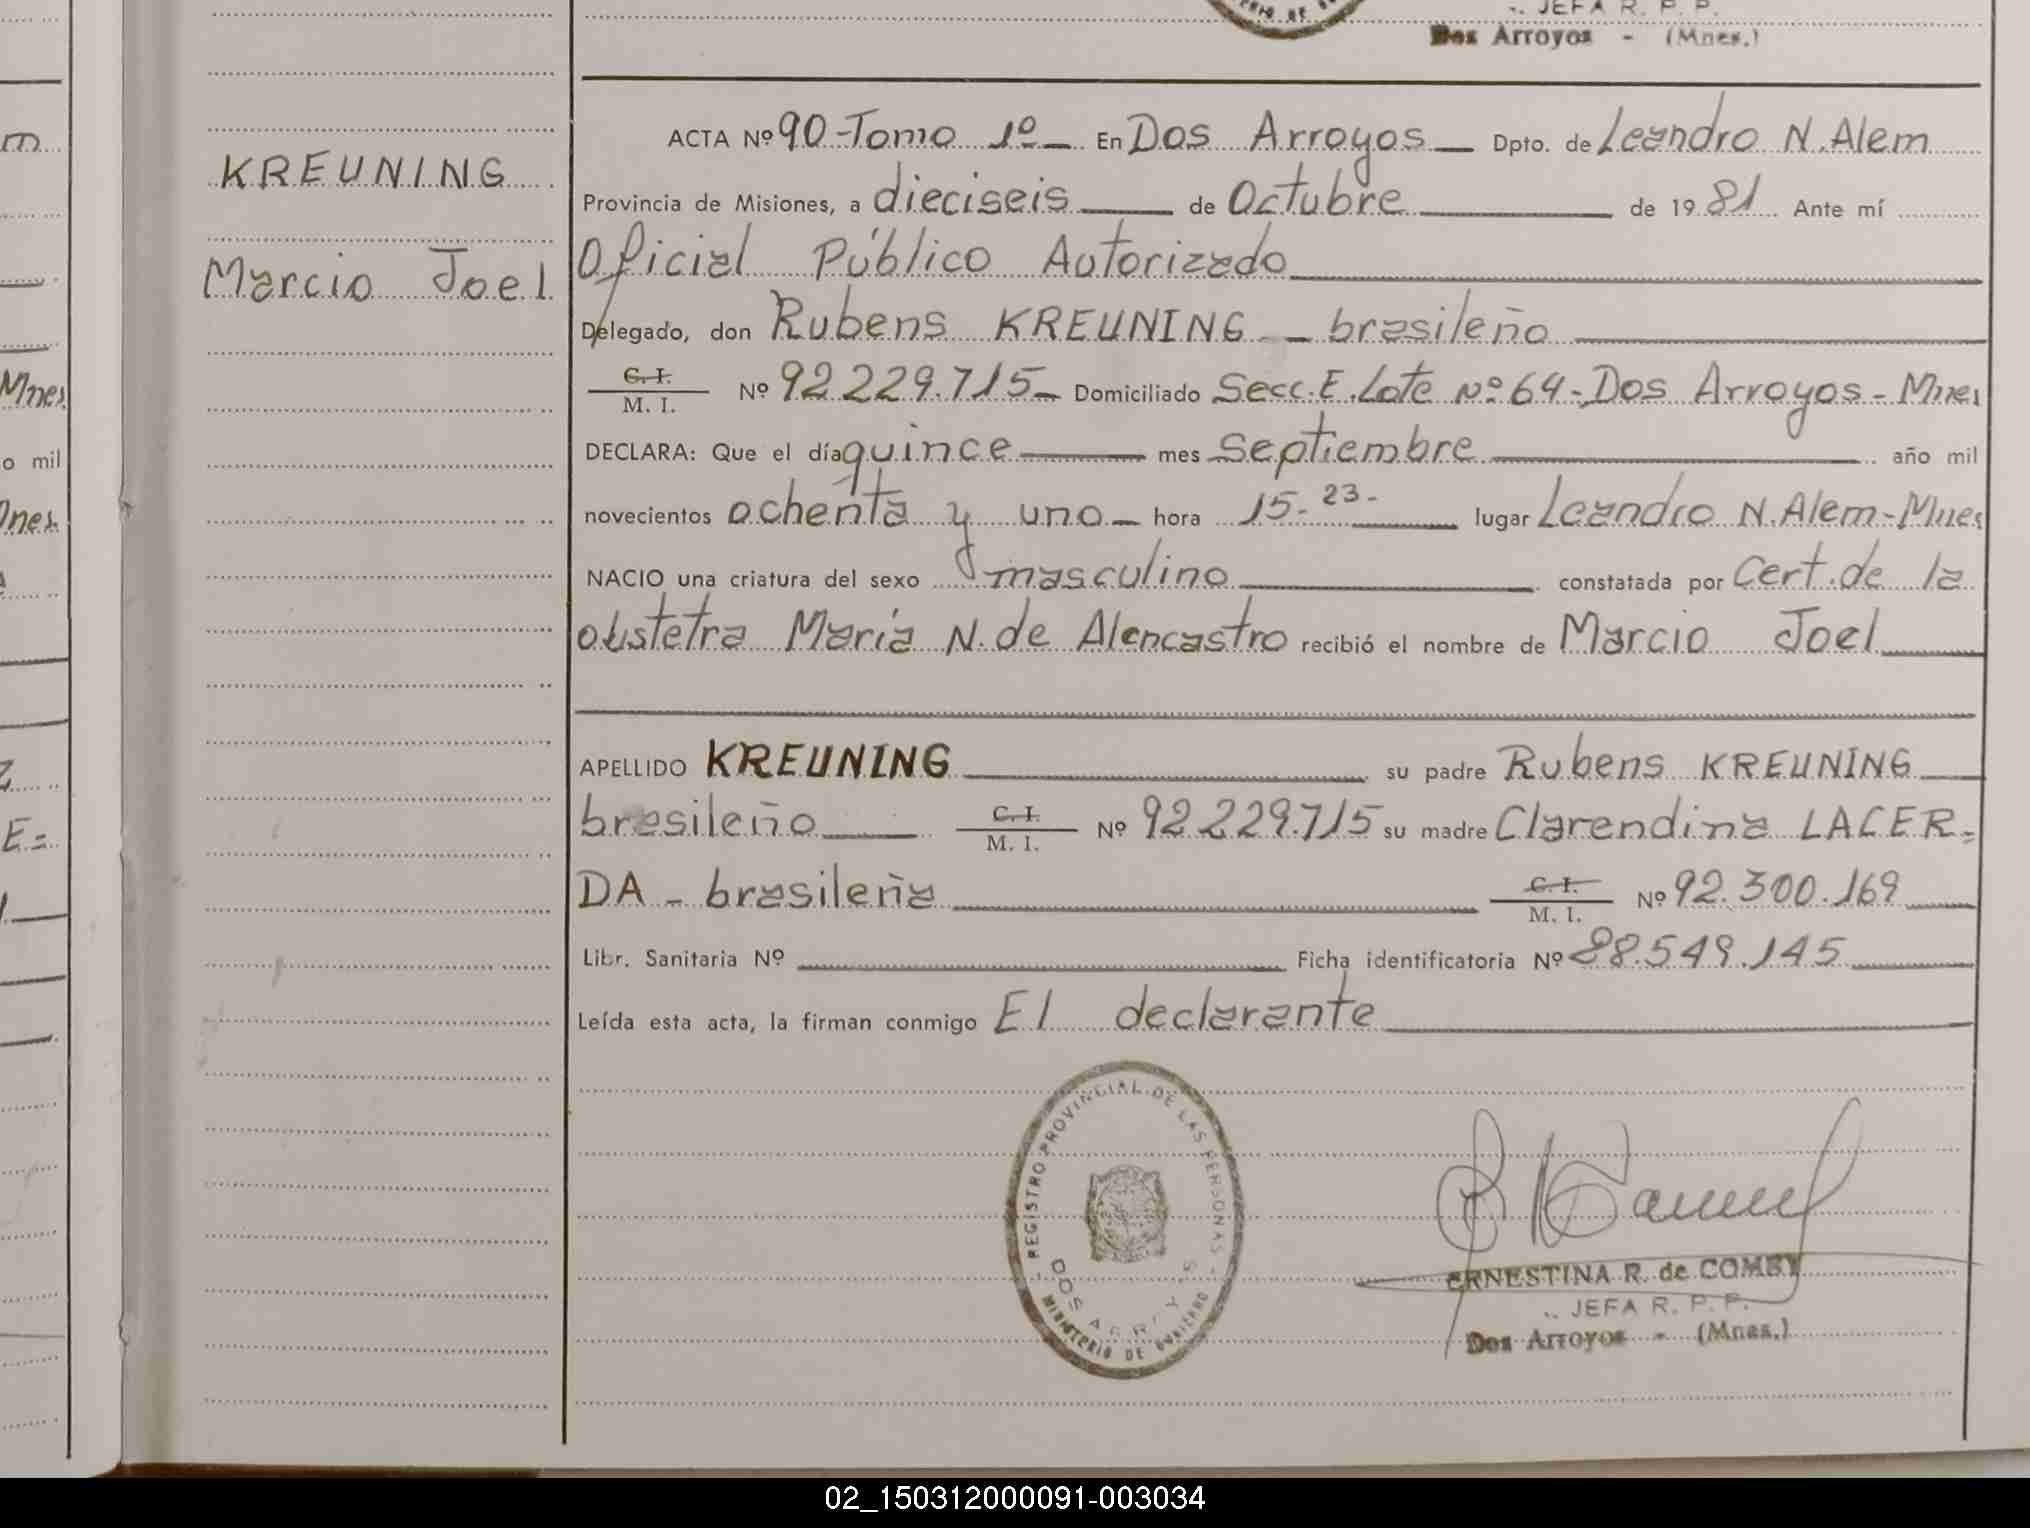 JEFA R. P. P.
Dos Arroyos - (Mnes.)
KREUNING
Marcio Joel
ACTA Nº 90-Tomo 1º- En Dos Arroyos Dpto. de Leandro N. Alem
Provincia de Misiones, a dieciseis de Octubre de 1981 Ante mí
Oficial Público Autorizado
Delegado, don Rubens KREUNING - brasileño
C. I. M. I. Nº 92.229.715- Domiciliado Secc. E. Lote Nº 64-Dos Arroyos-Mnes
DECLARA: Que el día quince mes septiembre año mil
novecientos ochenta y uno hora 15-23- lugar Leandro N. Alem-Mnes
NACIO una criatura del sexo masculino constatada por Cert. de la
obstetra María N. de Alencastro recibió el nombre de Marcio Joel
APELLIDO KREUNING su padre Rubens KREUNING
brasileño C. I. M. I. Nº 92.229.715 su madre Clarendina LACER=
DA - brasileña C. I. M. I. Nº 92.300.169
Libr. Sanitaria Nº Ficha identificatoria Nº 28.549.145
Leída esta acta, la firman conmigo El declarante
REGISTRO PROVINCIAL DE LAS PERSONAS
DOS ARROYOS
MINISTERIO DE GOBIERNO
ERNESTINA R. de COMBY
JEFA R. P. P.
Dos Arroyos - (Mnes.)
02_150312000091-003034